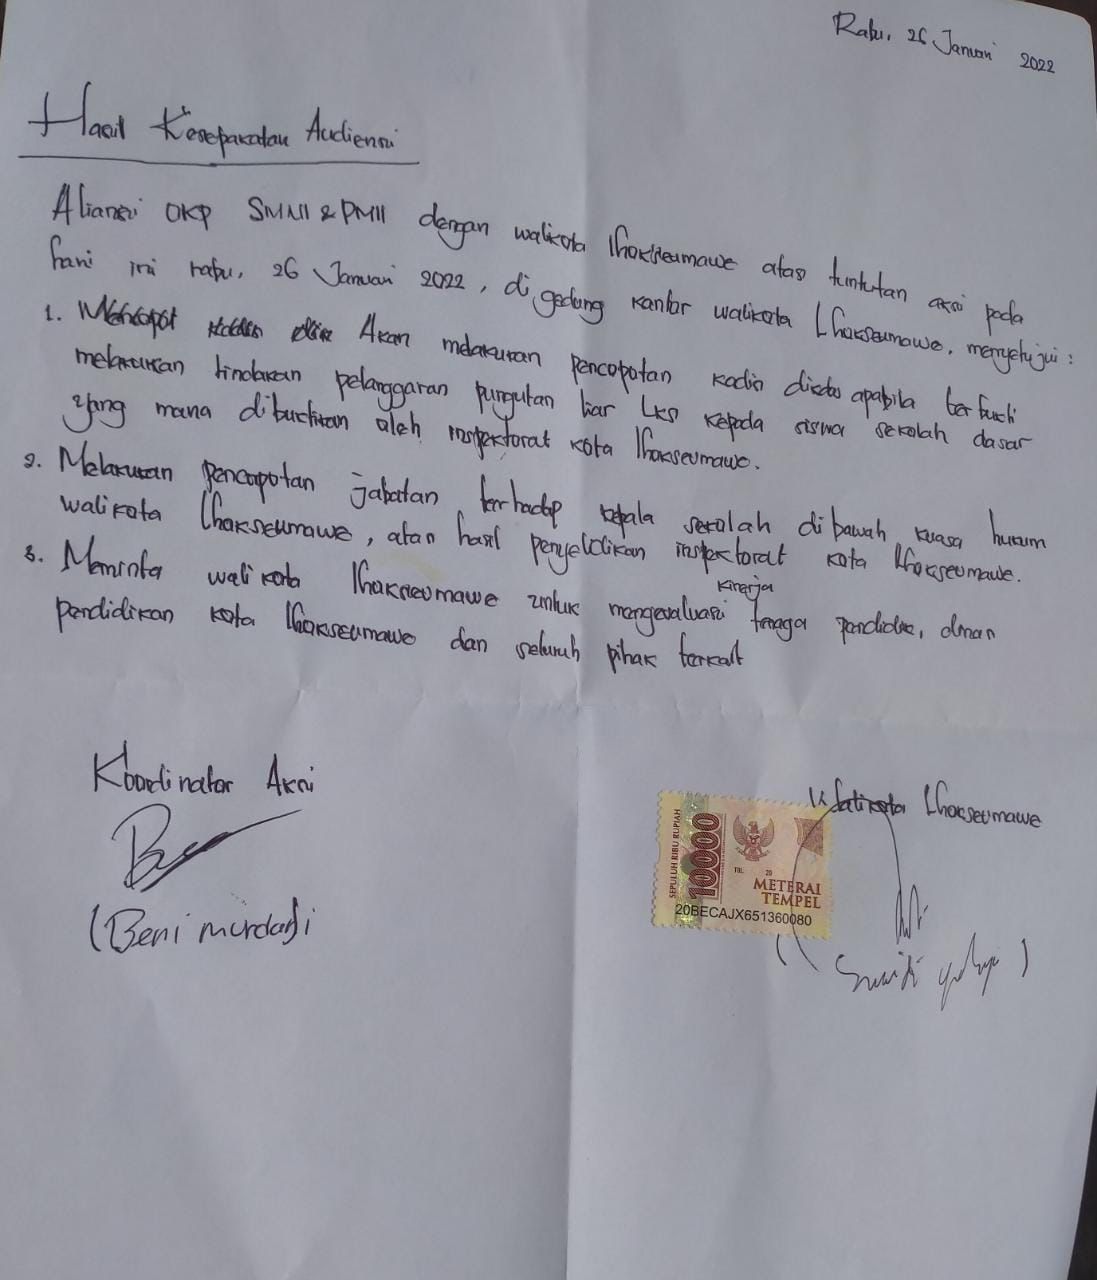 Rabu, 26 Januari 2022
Hasil Kesepakatan Audiensi
Aliansi OKP SMNII & PMII dengan walikota lhokseumawe atas tuntutan aksi pada
hari ini rabu, 26 Januari 2022, di gedung kantor walikota Lhokseumawe, menyetujui:
1. Mencopot Akan melakukan pencopotan kadis dikdas apabila terbukti
melakukan tindakan pelanggaran pungutan liar LKS kepada siswa sekolah dasar
yang mana dibuktikan oleh inspektorat kota lhokseumawe.
2. Melakukan pencopotan jabatan terhadap kepala sekolah dibawah kuasa hukum
walikota lhokseumawe, atan hasil penyelidikan inspektorat kota lhokseumawe.
kinerja
3. Meminta walikota lhokseumawe untuk mengevaluasi tenaga pendidik, dinas
pendidikan kota lhokseumawe dan seluruh pihak terkait
Koordinator Aksi
(Beni murdani
Walikota Lhokseumawe
SEPULUH RIBU RUPIAH
10000
TGL. 20
METERAI
TEMPEL
20BECAJX651360080